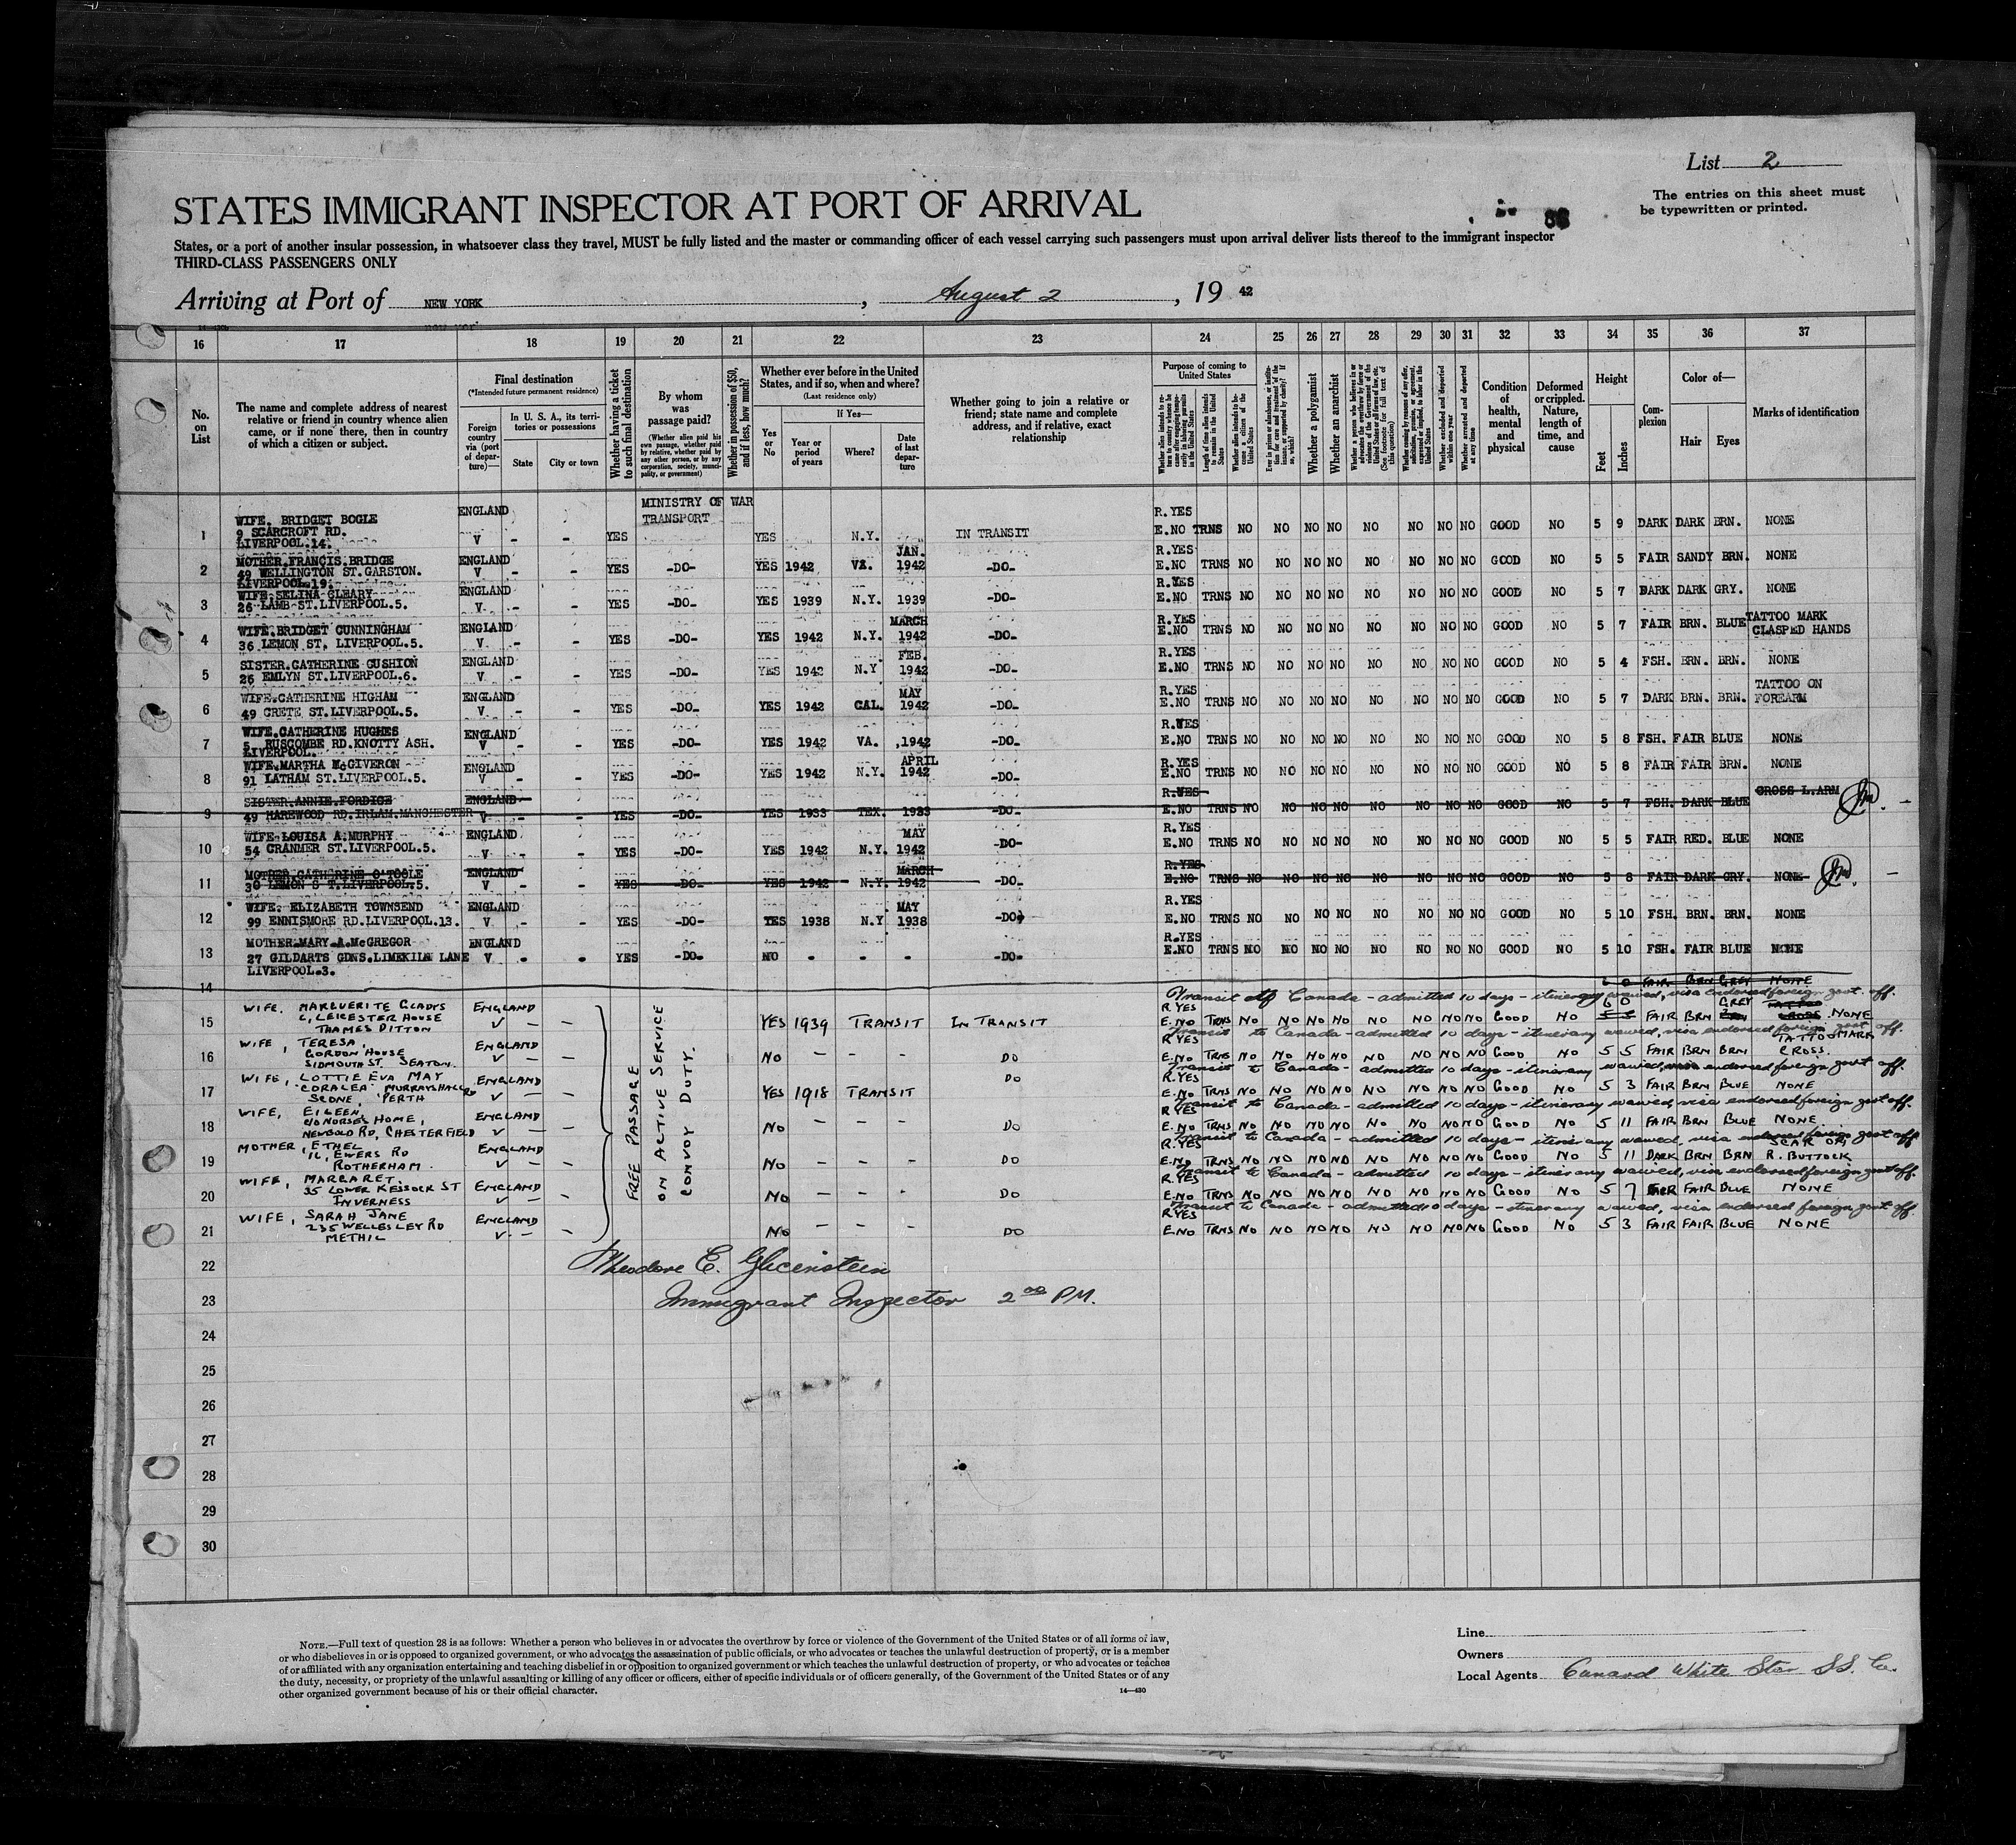 List 2
The entries on this sheet must
be typewritten or printed.
STATES IMMIGRANT INSPECTOR AT PORT OF ARRIVAL
88
States, or a port of another insular possession, in whatsoever class they travel, MUST be fully listed and the master or commanding officer of each vessel carrying such passengers must upon arrival deliver lists thereof to the immigrant inspector
THIRD-CLASS PASSENGERS ONLY
Arriving at Port of NEW YORK, August 2, 19 42
16 17 18 19 20 21 22 23 24 25 26 27 28 29 30 31 32 33 34 35 36 37
No. on List
The name and complete address of nearest relative or friend in country whence alien came, or if none there, then in country of which a citizen or subject.
Final destination
(*Intended future permanent residence)
Foreign country via (port of departure)—
In U. S. A., its territories or possessions
State
City or town
Whether having a ticket to such final destination
By whom was passage paid?
(Whether alien paid his own passage, whether paid by relative, whether paid by any other person, or by any corporation, society, municipality, or government)
Whether in possession of $50, and if less, how much?
Whether ever before in the United States, and if so, when and where?
(Last residence only)
Yes or No
If Yes—
Year or period of years
Where?
Date of last departure
Whether going to join a relative or friend; state name and complete address, and if relative, exact relationship
Purpose of coming to United States
Whether alien intends to return to country whence he came after engaging temporarily in laboring pursuits in the United States
Length of time alien intends to remain in the United States
Whether alien intends to become a citizen of the United States
Ever in prison or almshouse, or institution for care and treatment of the insane, or supported by charity? If so, which?
Whether a polygamist
Whether an anarchist
Whether a person who believes in or advocates the overthrow by force or violence of the Government of the United States or all forms of law, etc. (See footnote for full text of this question)
Whether coming by reason of any offer, solicitation, promise, or agreement, expressed or implied, to labor in the United States
Whether excluded and deported within one year
Whether arrested and deported at any time
Condition of health, mental and physical
Deformed or crippled. Nature, length of time, and cause
Height
Feet
Inches
Complexion
Color of—
Hair
Eyes
Marks of identification
MINISTRY OF WAR
TRANSPORT
WIFE. BRIDGET BOGLE ENGLAND R.YES
1 9 SCARCROFT RD. V - - YES YES N.Y. IN TRANSIT E.NO TRNS NO NO NO NO NO NO NO NO GOOD NO 5 9 DARK DARK BRN. NONE
LIVERPOOL.14.
MOTHER.FRANCIS.BRIDGE ENGLAND JAN. R.YES
2 49 WELLINGTON ST.GARSTON. V - - YES -DO- YES 1942 VA. 1942 -DO- E.NO TRNS NO NO NO NO NO NO NO NO GOOD NO 5 5 FAIR SANDY BRN. NONE
LIVERPOOL.19.
WIFE.SELINA CLEARY ENGLAND R.YES
3 26 LAMB ST.LIVERPOOL.5. V - - YES -DO- YES 1939 N.Y. 1939 -DO- E.NO TRNS NO NO NO NO NO NO NO NO GOOD NO 5 7 DARK DARK GRY. NONE
WIFE.BRIDGET CUNNINGHAM ENGLAND MARCH R.YES TATTOO MARK
4 36 LEMON ST. LIVERPOOL.5. V - - YES -DO- YES 1942 N.Y. 1942 -DO- E.NO TRNS NO NO NO NO NO NO NO NO GOOD NO 5 7 FAIR BRN. BLUE CLASPED HANDS
SISTER.CATHERINE CUSHION ENGLAND FEB. R.YES
5 26 EMLYN ST.LIVERPOOL.6. V - - YES -DO- YES 1942 N.Y 1942 -DO- E.NO TRNS NO NO NO NO NO NO NO NO GOOD NO 5 4 FSH. BRN. BRN. NONE
WIFE.CATHERINE HIGHAM ENGLAND MAY R.YES TATTOO ON
6 49 CRETE ST.LIVERPOOL.5. V - - YES -DO- YES 1942 CAL. 1942 -DO- E.NO TRNS NO NO NO NO NO NO NO NO GOOD NO 5 7 DARK BRN. BRN. FOREARM
WIFE.CATHERINE HUGHES ENGLAND R.YES
7 5 RUSCOMBE RD.KNOTTY ASH. V - - YES -DO- YES 1942 VA. ,1942 -DO- E.NO TRNS NO NO NO NO NO NO NO NO GOOD NO 5 8 FSH. FAIR BLUE NONE
LIVERPOOL.
WIFE.MARTHA McGIVERON ENGLAND APRIL R.YES
8 91 LATHAM ST.LIVERPOOL.5. V - - YES -DO- YES 1942 N.Y. 1942 -DO- E.NO TRNS NO NO NO NO NO NO NO NO GOOD NO 5 8 FAIR FAIR BRN. NONE
SISTER.ANNIE.FORDICE ENGLAND R.YES CROSS L.ARM
9 49 HAREWOOD RD.IRLAM.MANCHESTER V - - YES -DO- YES 1933 TEX. 1933 -DO- E.NO TRNS NO NO NO NO NO NO NO NO GOOD NO 5 7 FSH. DARK BLUE
WIFE LOUISA A.MURPHY ENGLAND MAY R.YES
10 54 CRANMER ST.LIVERPOOL.5. V - - YES -DO- YES 1942 N.Y. 1942 -DO- E.NO TRNS NO NO NO NO NO NO NO NO GOOD NO 5 5 FAIR RED. BLUE NONE
MOTHER.CATHERINE O'TOOLE ENGLAND MARCH R.YES
11 30 LEMON S T.LIVERPOOL.5. V - - YES -DO- YES 1942 N.Y. 1942 -DO- E.NO TRNS NO NO NO NO NO NO NO NO GOOD NO 5 8 FAIR DARK GRY. NONE
WIFE. ELIZABETH TOWNSEND ENGLAND MAY R.YES
12 99 ENNISMORE RD.LIVERPOOL.13. V - - YES -DO- YES 1938 N.Y 1938 -DO- E.NO TRNS NO NO NO NO NO NO NO NO GOOD NO 5 10 FSH. BRN. BRN. NONE
MOTHER.MARY A.McGREGOR ENGLAND R.YES
13 27 GILDARTS GDNS.LIMEKILN LANE V - - YES -DO- NO - - - -DO- E.NO TRNS NO NO NO NO NO NO NO NO GOOD NO 5 10 FSH. FAIR BLUE NONE
LIVERPOOL.3.
14 6 0 FAIR BRN GREY NONE
Transit to Canada - admitted 10 days - itinerary waived, visa endorsed foreign govt. off.
WIFE. MARGUERITE GLADYS ENGLAND R YES 6 0 GREY TATTOO
15 C, LEICESTER HOUSE V - - YES 1939 TRANSIT IN TRANSIT E.NO TRNS NO NO NO NO NO NO NO NO GOOD NO FAIR BRN CROSS NONE
THAMES DITTON
Transit to Canada - admitted 10 days - itinerary waived, visa endorsed foreign govt off.
WIFE, TERESA, ENGLAND R.YES TATTOO MARK
16 GORDON HOUSE V - - NO - - - DO E.NO TRNS NO NO NO NO NO NO NO NO GOOD NO 5 5 FAIR BRN BRN CROSS.
SIDMOUTH ST. SEATON.
Transit to Canada - admitted 10 days - itinerary waived, visa endorsed foreign govt off.
WIFE, LOTTIE EVA MAY ENGLAND DO R.YES
17 "CORALEA" MURRAYSHALL RD V - - YES 1918 TRANSIT E.NO TRNS NO NO NO NO NO NO NO NO GOOD NO 5 3 FAIR BRN BLUE NONE
SCONE, PERTH
Transit to Canada - admitted 10 days - itinerary waived, visa endorsed foreign govt off.
WIFE, EILEEN, ENGLAND R YES
18 C/O NURSES HOME, V - - NO - - - DO E.NO TRNS NO NO NO NO NO NO NO NO GOOD NO 5 11 FAIR BRN BLUE NONE
NEWBOLD RD, CHESTERFIELD
Transit to Canada - admitted 10 days - itinerary waived, visa endorsed foreign govt off
MOTHER, ETHEL ENGLAND R.YES SCAR ON
19 16, EWERS RD V - - NO - - - DO E.NO TRNS NO NO NO NO NO NO NO NO GOOD NO 5 11 DARK BRN BRN R. BUTTOCK
ROTHERHAM.
Transit to Canada - admitted 10 days - itinerary waived, visa endorsed foreign govt off.
WIFE, MARGARET. ENGLAND R.YES
20 35 LOWER KESSOCK ST V - - NO - - - DO E.NO TRNS NO NO NO NO NO NO NO NO GOOD NO 5 7 FAIR FAIR BLUE NONE
INVERNESS
Transit to Canada - admitted 10 days - itinerary waived, visa endorsed foreign govt off.
WIFE, SARAH JANE ENGLAND R.YES
21 235 WELLESLEY RD V - - NO - - - DO E.NO TRNS NO NO NO NO NO NO NO NO GOOD NO 5 3 FAIR FAIR BLUE NONE
METHIL
FREE PASSAGE
ON ACTIVE SERVICE
CONVOY DUTY.
22 Theodore E. Glicenstein
23 Immigrant Inspector 2 00 P.M.
24
25
26
27
28
29
30
NOTE.—Full text of question 28 is as follows: Whether a person who believes in or advocates the overthrow by force or violence of the Government of the United States or of all forms of law,
or who disbelieves in or is opposed to organized government, or who advocates the assassination of public officials, or who advocates or teaches the unlawful destruction of property, or is a member
of or affiliated with any organization entertaining and teaching disbelief in or opposition to organized government or which teaches the unlawful destruction of property, or who advocates or teaches
the duty, necessity, or propriety of the unlawful assaulting or killing of any officer or officers, either of specific individuals or of officers generally, of the Government of the United States or of any
other organized government because of his or their official character.
14—430
Line
Owners
Local Agents Cunard White Star S.S. Co.